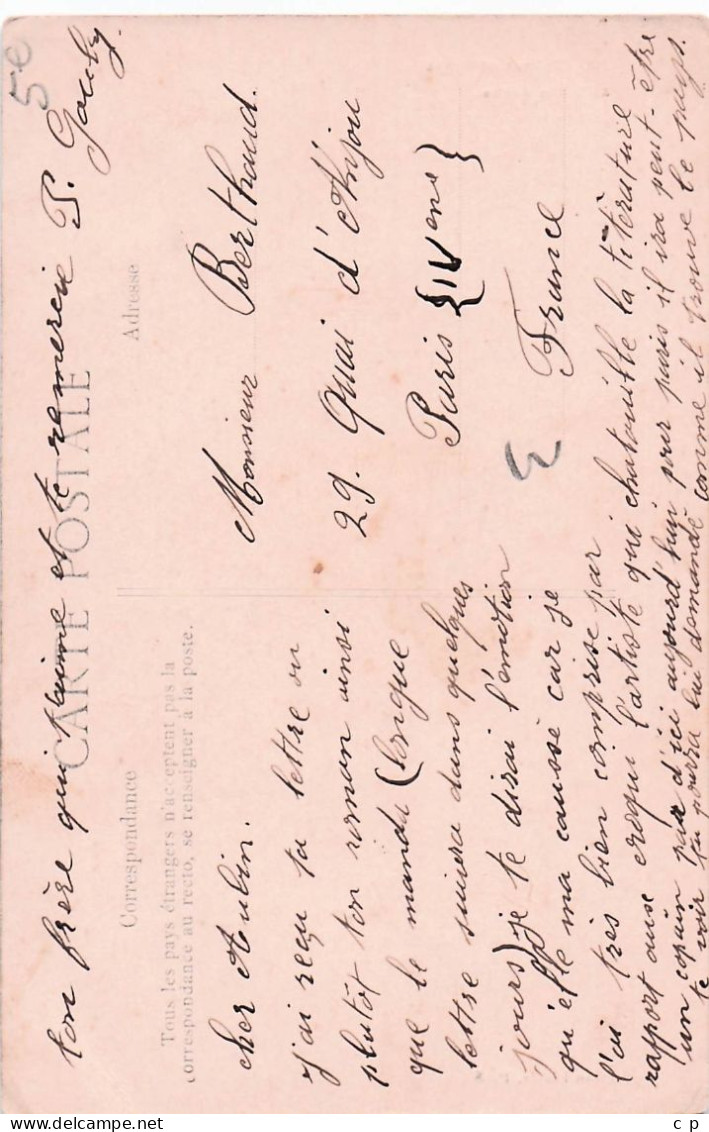 5e
CARTE POSTALE
Correspondance
Adresse
Tous les pays étrangers n'acceptent pas la
correspondance au recto, se renseigner à la poste.
Monsieur Berthaud.
29. Quai d'Anjou
Paris {IV eme}
France
cher Aubin.
J'ai reçu ta lettre ou
plutôt ton roman ainsi
que le manda (longue
lettre suivra dans quelques
jours) je te dirai l'émotion
qu'elle ma caussé car je
l'ai très bien comprise par
rapport ause croqui l'artiste qui chatouille la litèrature
un copain par d'ici aujourd'hui pour paris il ira peut-être
te voir tu pourra lui demandé comme il trouve le pays.
ton frère qui t'aime et te remercie P.
c p